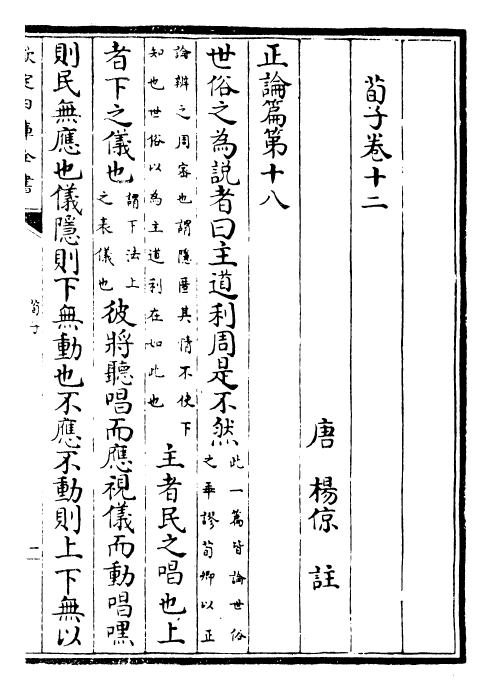 荀子卷十二
唐 楊倞 註
正論篇第十八
世俗之為說者曰主道利周是不然此一篇皆論世俗之乖謬荀卿以正
論辨之周密也謂隱匿其情不使下知也世俗以為主道利在如此也主者民之唱也上
者下之儀也謂下法上之表儀也彼將聽唱而應視儀而動唱嘿
則民無應也儀隱則下無動也不應不動則上下無以
欽定四庫全書
荀子
二